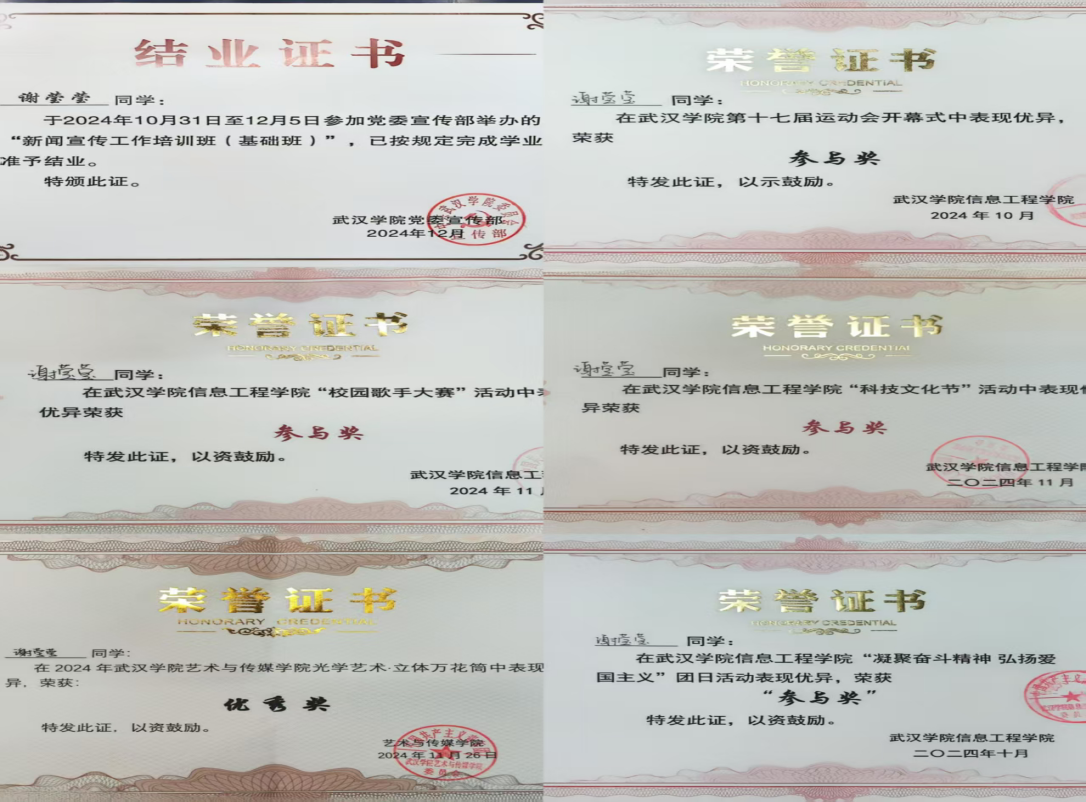 结业证书
谢莹莹 同学：
于2024年10月31日至12月5日参加党委宣传部举办的
“新闻宣传工作培训班（基础班）”，已按规定完成学业
准予结业。
特颁此证。
武汉学院党委宣传部
2024年12月
宣传部
荣誉证书
HONORARY CREDENTIAL
谢莹莹 同学：
在武汉学院第十七届运动会开幕式中表现优异，
荣获
参与奖
特发此证，以示鼓励。
武汉学院信息工程学院
2024 年 10 月
荣誉证书
HONORARY CREDENTIAL
谢莹莹 同学：
在武汉学院信息工程学院“校园歌手大赛”活动中
优异荣获
参与奖
特发此证，以资鼓励。
武汉学院信息工
2024 年 11
荣誉证书
HONORARY CREDENTIAL
谢莹莹 同学：
在武汉学院信息工程学院“科技文化节”活动中表现
异荣获
参与奖
特发此证，以资鼓励。
武汉学院信息工程学
二〇二四年 11 月
荣誉证书
HONORARY CREDENTIAL
谢莹莹 同学：
在 2024 年武汉学院艺术与传媒学院光学艺术·立体万花筒中表现
异，荣获：
优秀奖
特发此证，以资鼓励。
艺术与传媒学院
2024 年 11 月 26 日
荣誉证书
HONORARY CREDENTIAL
谢莹莹 同学：
在武汉学院信息工程学院“凝聚奋斗精神 弘扬爱
国主义”团日活动表现优异，荣获
“参与奖”
特发此证，以资鼓励。
武汉学院信息工程学院
二〇二四年十月